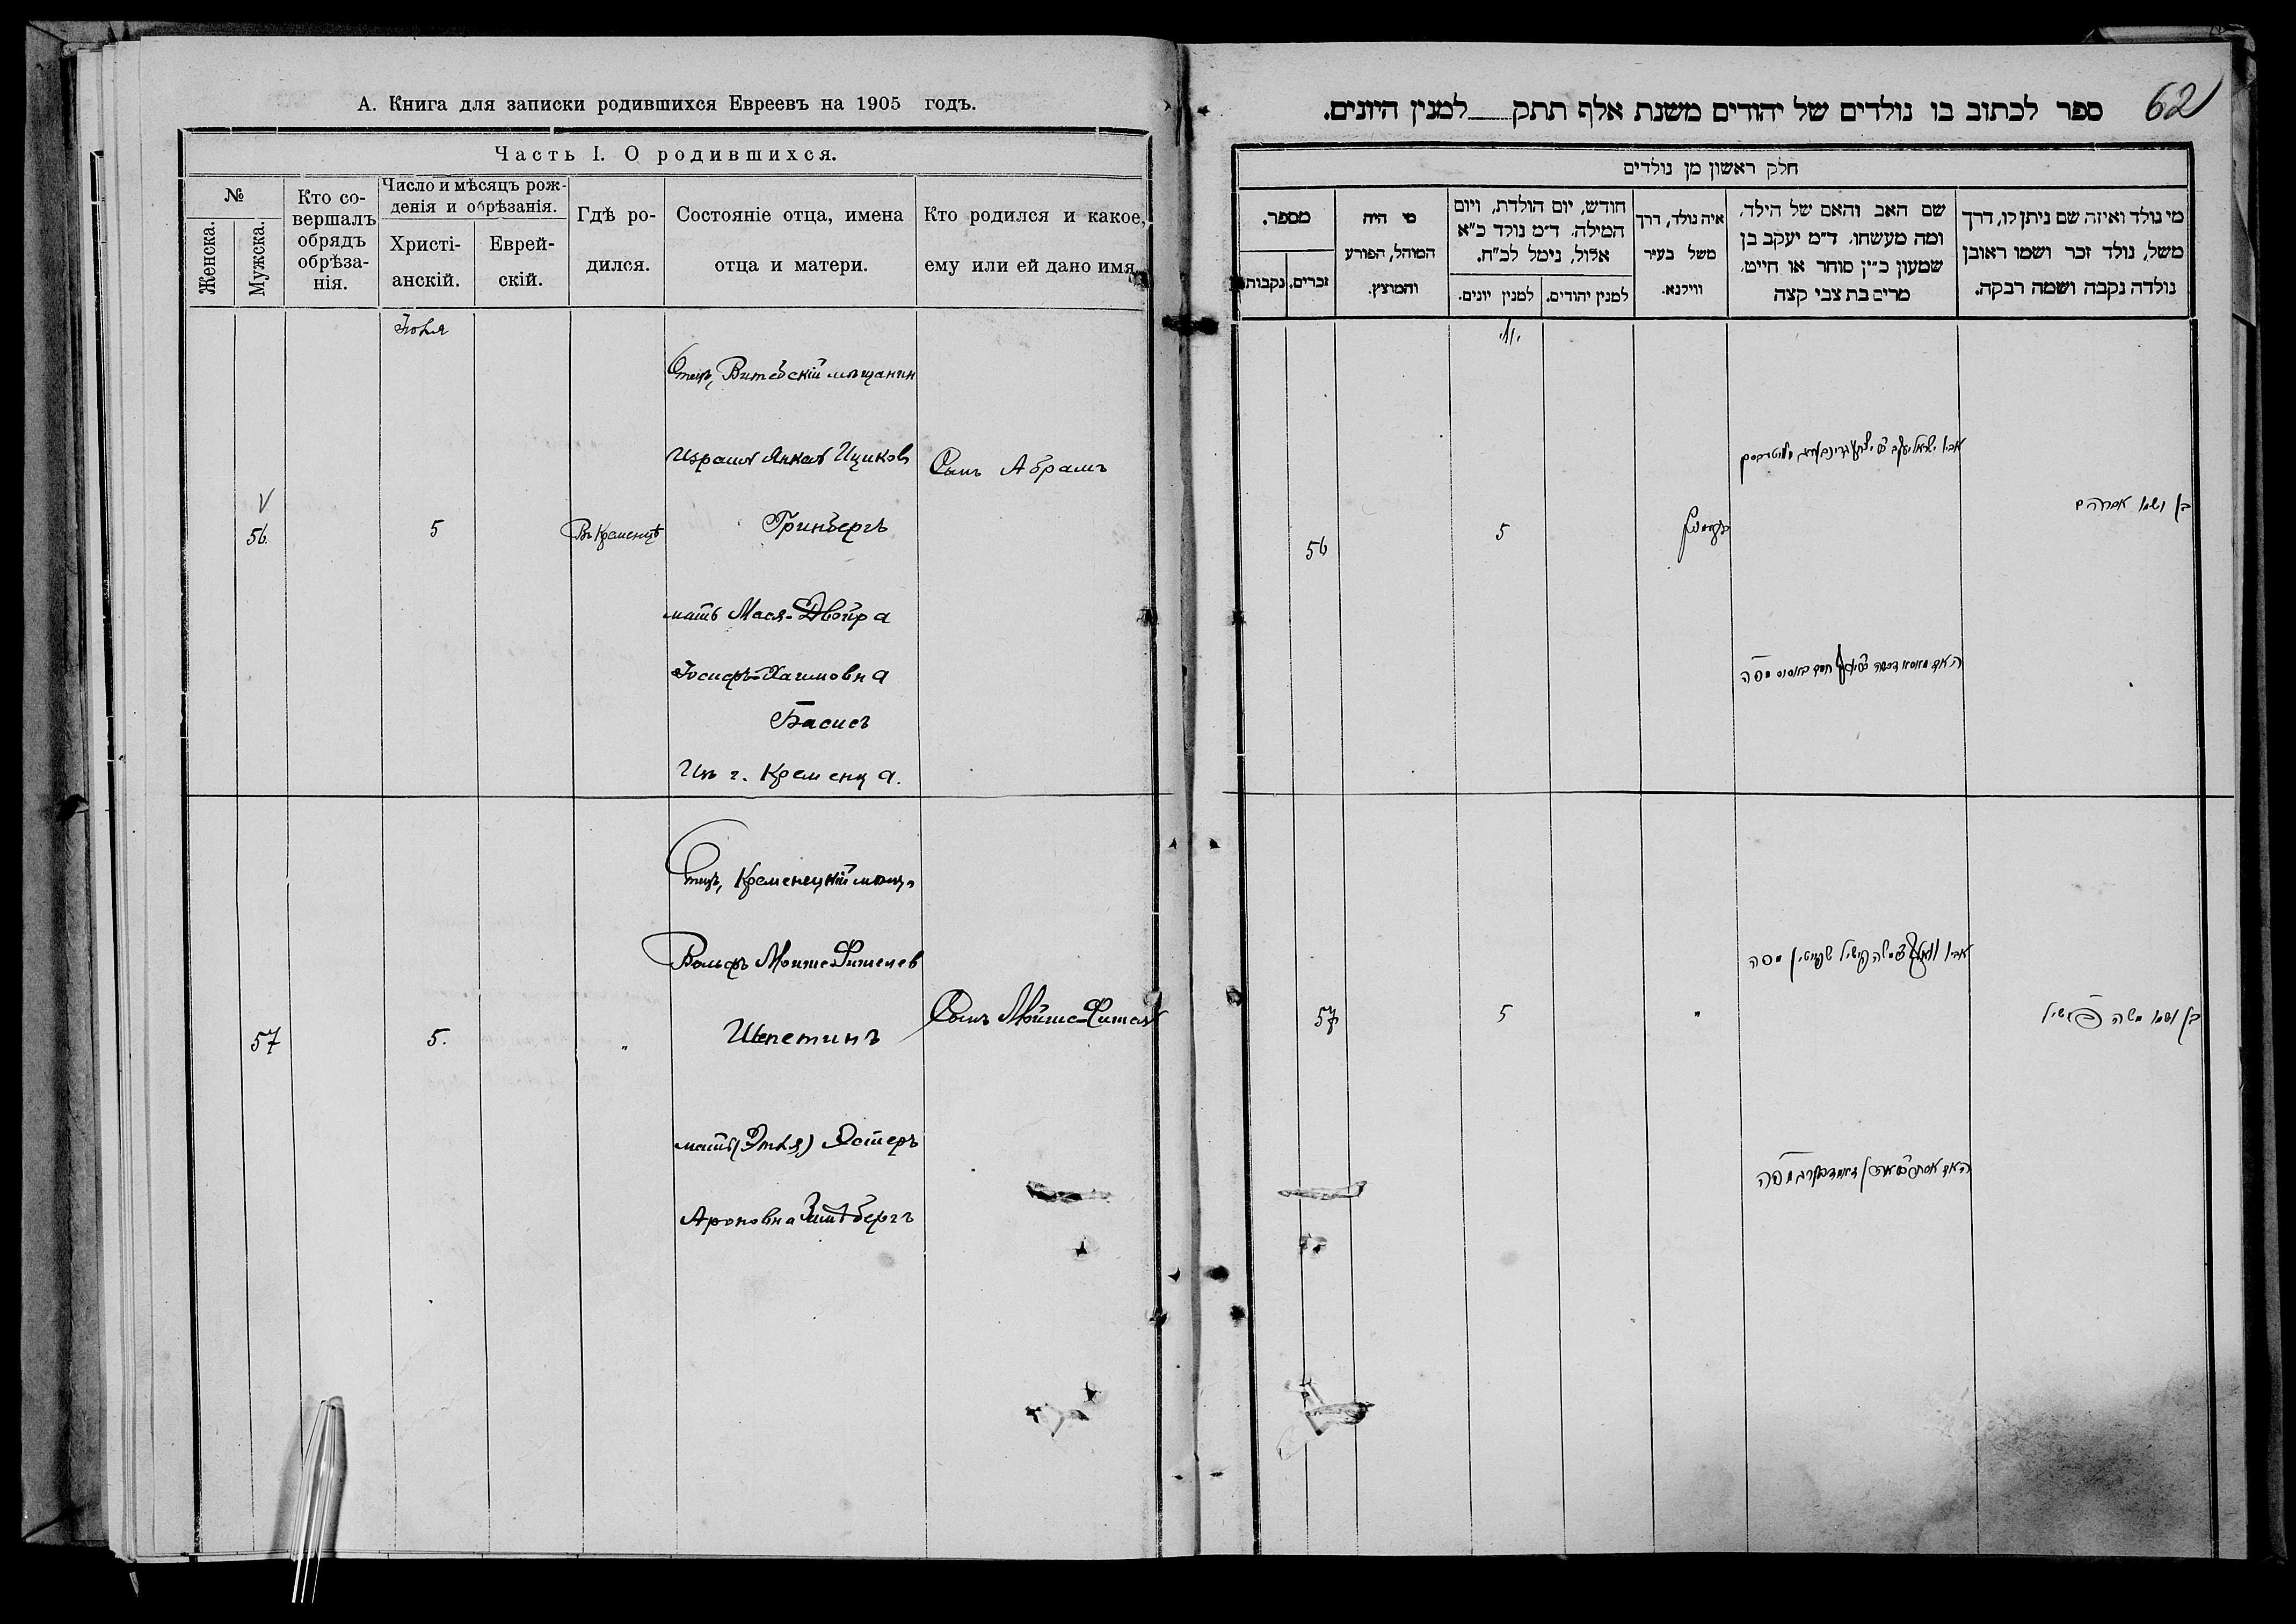 А. Книга для записки родившихся Евреевъ на 1905 годъ.
Часть I. О родившихся.
№
Женска.
Мужска.
Кто со-
вершалъ
обрядъ
обрѣза-
нія.
Число и мѣсяцъ рож-
денія и обрѣзанія.
Христі-
анскій.
Еврей-
скій.
Гдѣ ро-
дился.
Состояніе отца, имена
отца и матери.
Кто родился и какое,
ему или ей дано имя.
Іюля
56
5
Въ Кременцѣ
Отецъ, Витебскій мѣщанин
Израиль Янкель Ициков
Гринбергъ
мать Мася-Двойра
Іосифъ-Хаимовна
Басисъ
Из г. Кременца.
Сынъ Абрамъ
57
5.
"
Отецъ, Кременецкій мѣщ.
Вольфъ Мойше-Фишелев
Шпетинъ
мать (Этля) Эстеръ
Ароновна
Сынъ Мойше-Фишель
62
ספר לכתוב בו נולדים של יהודים משנת אלף תתק למנין היונים.
חלק ראשון מן נולדים
מי נולד ואיזה שם ניתן לו, דרך
משל, נולד זכר ושמו ראובן
נולדה נקבה ושמה רבקה.
שם האב והאם של הילד,
ומה מעשהו. ד״מ יעקב בן
שמעון כ״ץ סוחר או חייט,
מרים בת צבי קצה
איה נולד, דרך
משל בעיר
ווילנא.
חודש, יום הולדת, ויום
המילה. ד״מ נולד כ״א
אלול, נימל לכ״ח.
למנין יהודים.
למנין יונים.
מי היה
המוהל, הפורע
והמוצץ.
מספר.
זכרים.
נקבות.
יולי
בן ושמו אברהם
5
56
בן ושמו משה פישיל
"
5
57